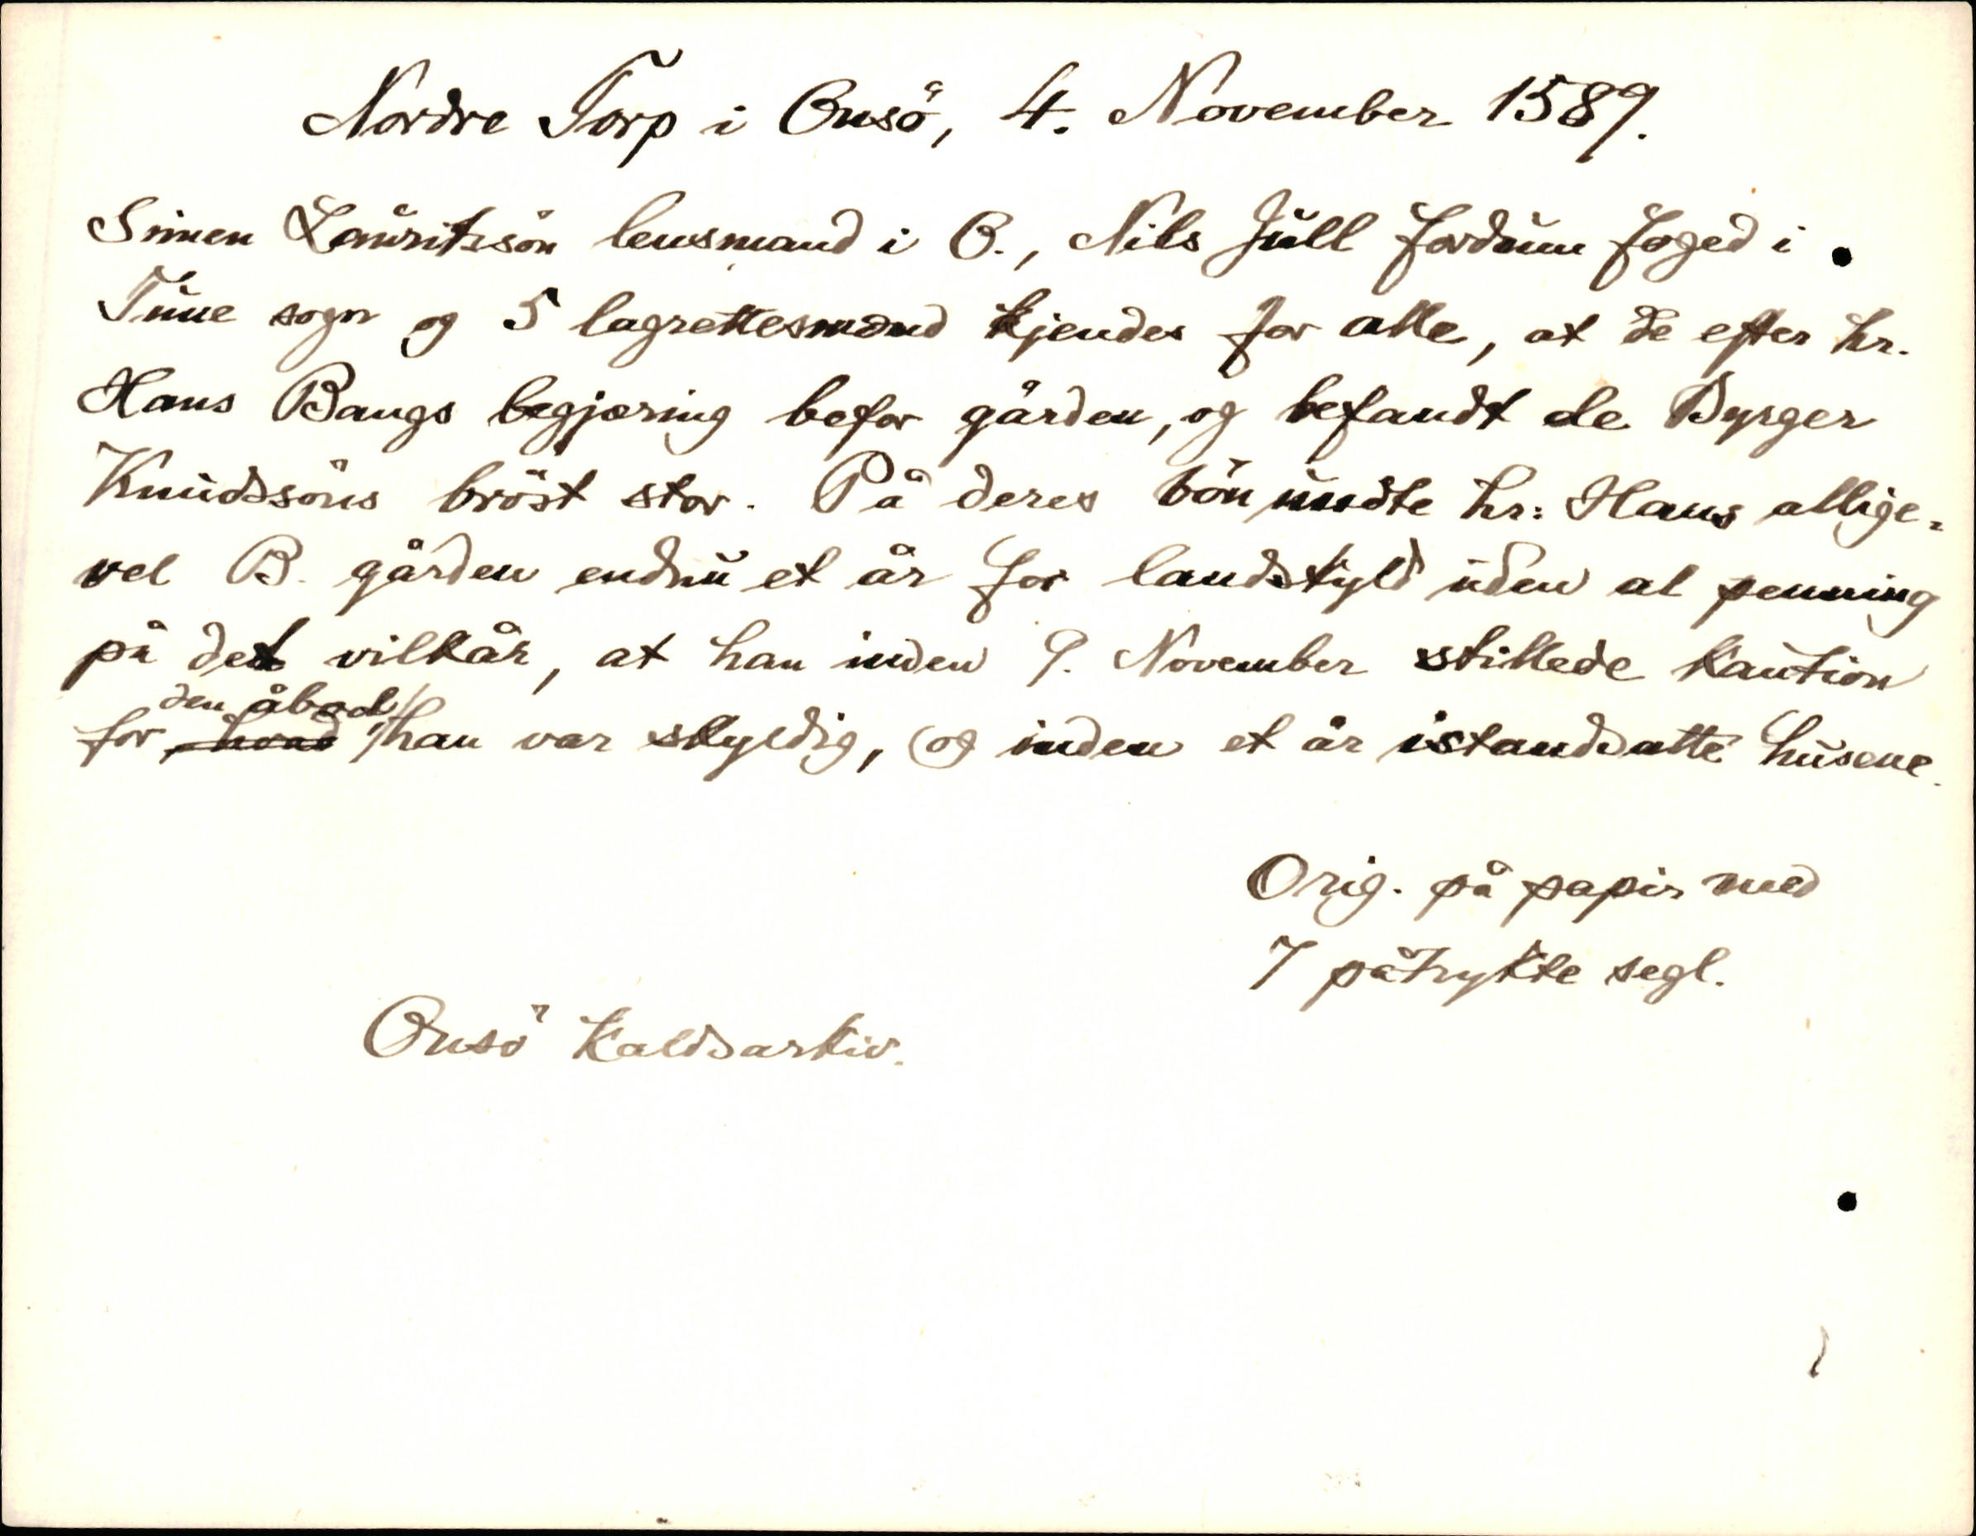 Nordre Torp i Onsö, 4. November 1589.
Simen Lauritssön lensmand i O., Nils Jull fordum foged i
Tune sogn og 5 lagrettesmænd kjendes for alle, at de efter hr.
Hans Bangs begjæring befor gården, og befandt de Byrger
Knudssöns bröst stor. På deres bön undte hr: Hans allige=
vel B. gården endnu et år for landskyld uden al penning
på det vilkår, at han inden 9. November stillede kaution
den åbod
for hvad han var skyldig, og inden et år istandsatte husene.
Orig. på papir med
7 påtrykte segl.
Onsö kaldsarkiv.